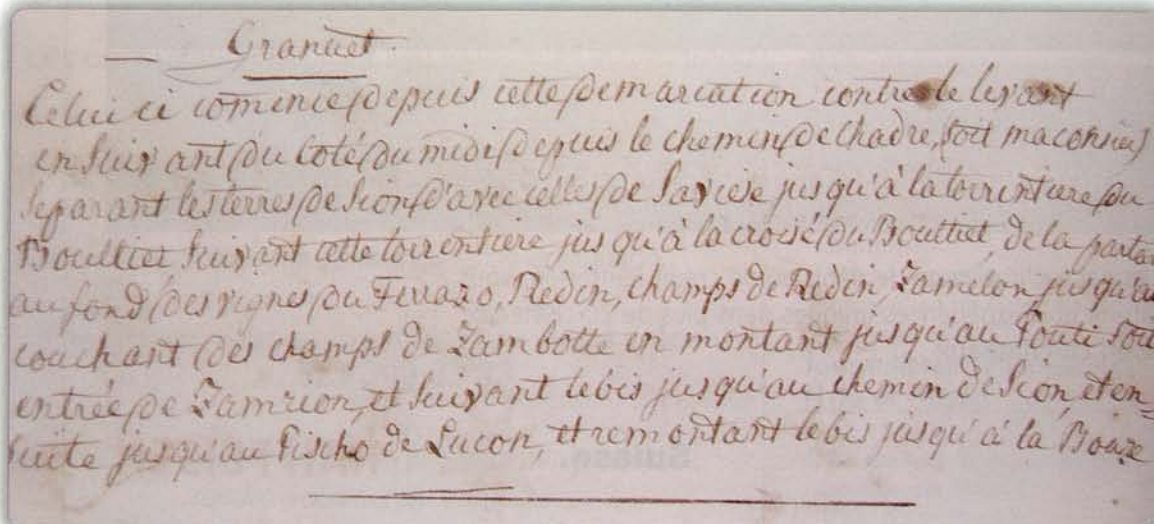 Granuet.
Celui ci comence depuis cette demarcation contre le levant
en suivant du coté du midi depuis le chemin de Chadre, soit maconnies
separant les terres de Sion d'avec celles de Saviese jusqu'à la torrentiere du
Boulliet suivant cette torrentiere jusqu'à la croisé du Bouttiet de la partan
au fond des vignes du Ferrazo, Redin, champs de Redin, Zamélon, jusqu'au
couchant des champs de Zambotte en montant jusqu'au Pouti sou
entrée de Zamrion, et suivant le bis jusqu'au chemin de Sion, et en=
suite jusqu'au Pischo de Lucon, et remontant le bis jusqu'à la Bouze
Suisse.